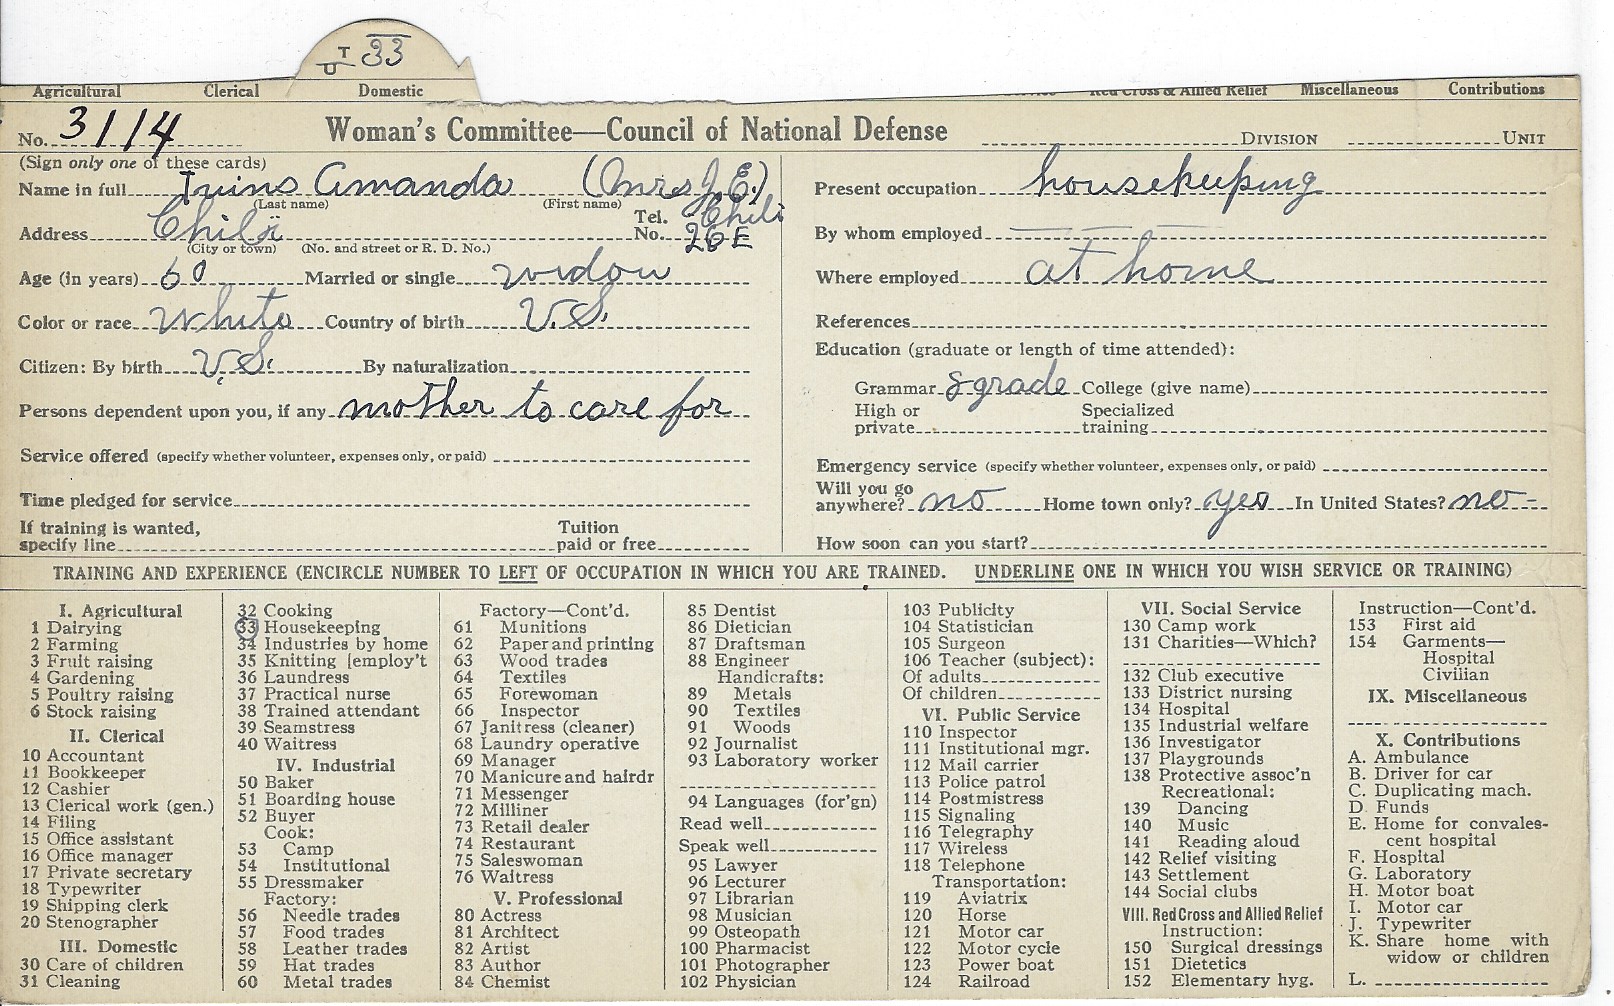 T 33
U
Agricultural Clerical Domestic Red Cross & Allied Relief Miscellaneous Contributions
No. 3114 Woman's Committee—Council of National Defense DIVISION UNIT
(Sign only one of these cards)
Name in full Amanda (Mrs J. E.)
(Last name) (First name)
Address Chili Tel. No. Chili 26 E
(City or town) (No. and street or R. D. No.)
Age (in years) 60 Married or single widow
Color or race White Country of birth U.S.
Citizen: By birth U.S. By naturalization
Persons dependent upon you, if any mother to care for
Service offered (specify whether volunteer, expenses only, or paid)
Time pledged for service
If training is wanted, specify line Tuition paid or free
Present occupation housekeeping
By whom employed
Where employed at home
References
Education (graduate or length of time attended):
Grammar 8 grade College (give name)
High or private Specialized training
Emergency service (specify whether volunteer, expenses only, or paid)
Will you go anywhere? no Home town only? yes In United States? no
How soon can you start?
TRAINING AND EXPERIENCE (ENCIRCLE NUMBER TO LEFT OF OCCUPATION IN WHICH YOU ARE TRAINED. UNDERLINE ONE IN WHICH YOU WISH SERVICE OR TRAINING)
I. Agricultural
1 Dairying
2 Farming
3 Fruit raising
4 Gardening
5 Poultry raising
6 Stock raising
II. Clerical
10 Accountant
11 Bookkeeper
12 Cashier
13 Clerical work (gen.)
14 Filing
15 Office assistant
16 Office manager
17 Private secretary
18 Typewriter
19 Shipping clerk
20 Stenographer
III. Domestic
30 Care of children
31 Cleaning
32 Cooking
33 Housekeeping
34 Industries by home
35 Knitting [employ't
36 Laundress
37 Practical nurse
38 Trained attendant
39 Seamstress
40 Waitress
IV. Industrial
50 Baker
51 Boarding house
52 Buyer
Cook:
53 Camp
54 Institutional
55 Dressmaker
Factory:
56 Needle trades
57 Food trades
58 Leather trades
59 Hat trades
60 Metal trades
Factory—Cont'd.
61 Munitions
62 Paper and printing
63 Wood trades
64 Textiles
65 Forewoman
66 Inspector
67 Janitress (cleaner)
68 Laundry operative
69 Manager
70 Manicure and hairdr
71 Messenger
72 Milliner
73 Retail dealer
74 Restaurant
75 Saleswoman
76 Waitress
V. Professional
80 Actress
81 Architect
82 Artist
83 Author
84 Chemist
85 Dentist
86 Dietician
87 Draftsman
88 Engineer
Handicrafts:
89 Metals
90 Textiles
91 Woods
92 Journalist
93 Laboratory worker
94 Languages (for'gn)
Read well
Speak well
95 Lawyer
96 Lecturer
97 Librarian
98 Musician
99 Osteopath
100 Pharmacist
101 Photographer
102 Physician
103 Publicity
104 Statistician
105 Surgeon
106 Teacher (subject):
Of adults
Of children
VI. Public Service
110 Inspector
111 Institutional mgr.
112 Mail carrier
113 Police patrol
114 Postmistress
115 Signaling
116 Telegraphy
117 Wireless
118 Telephone
Transportation:
119 Aviatrix
120 Horse
121 Motor car
122 Motor cycle
123 Power boat
124 Railroad
VII. Social Service
130 Camp work
131 Charities—Which?
132 Club executive
133 District nursing
134 Hospital
135 Industrial welfare
136 Investigator
137 Playgrounds
138 Protective assoc'n
Recreational:
139 Dancing
140 Music
141 Reading aloud
142 Relief visiting
143 Settlement
144 Social clubs
VIII. Red Cross and Allied Relief
Instruction:
150 Surgical dressings
151 Dietetics
152 Elementary hyg.
Instruction—Cont'd.
153 First aid
154 Garments—
Hospital
Civilian
IX. Miscellaneous
X. Contributions
A. Ambulance
B. Driver for car
C. Duplicating mach.
D. Funds
E. Home for convales-
cent hospital
F. Hospital
G. Laboratory
H. Motor boat
I. Motor car
J. Typewriter
K. Share home with
widow or children
L.